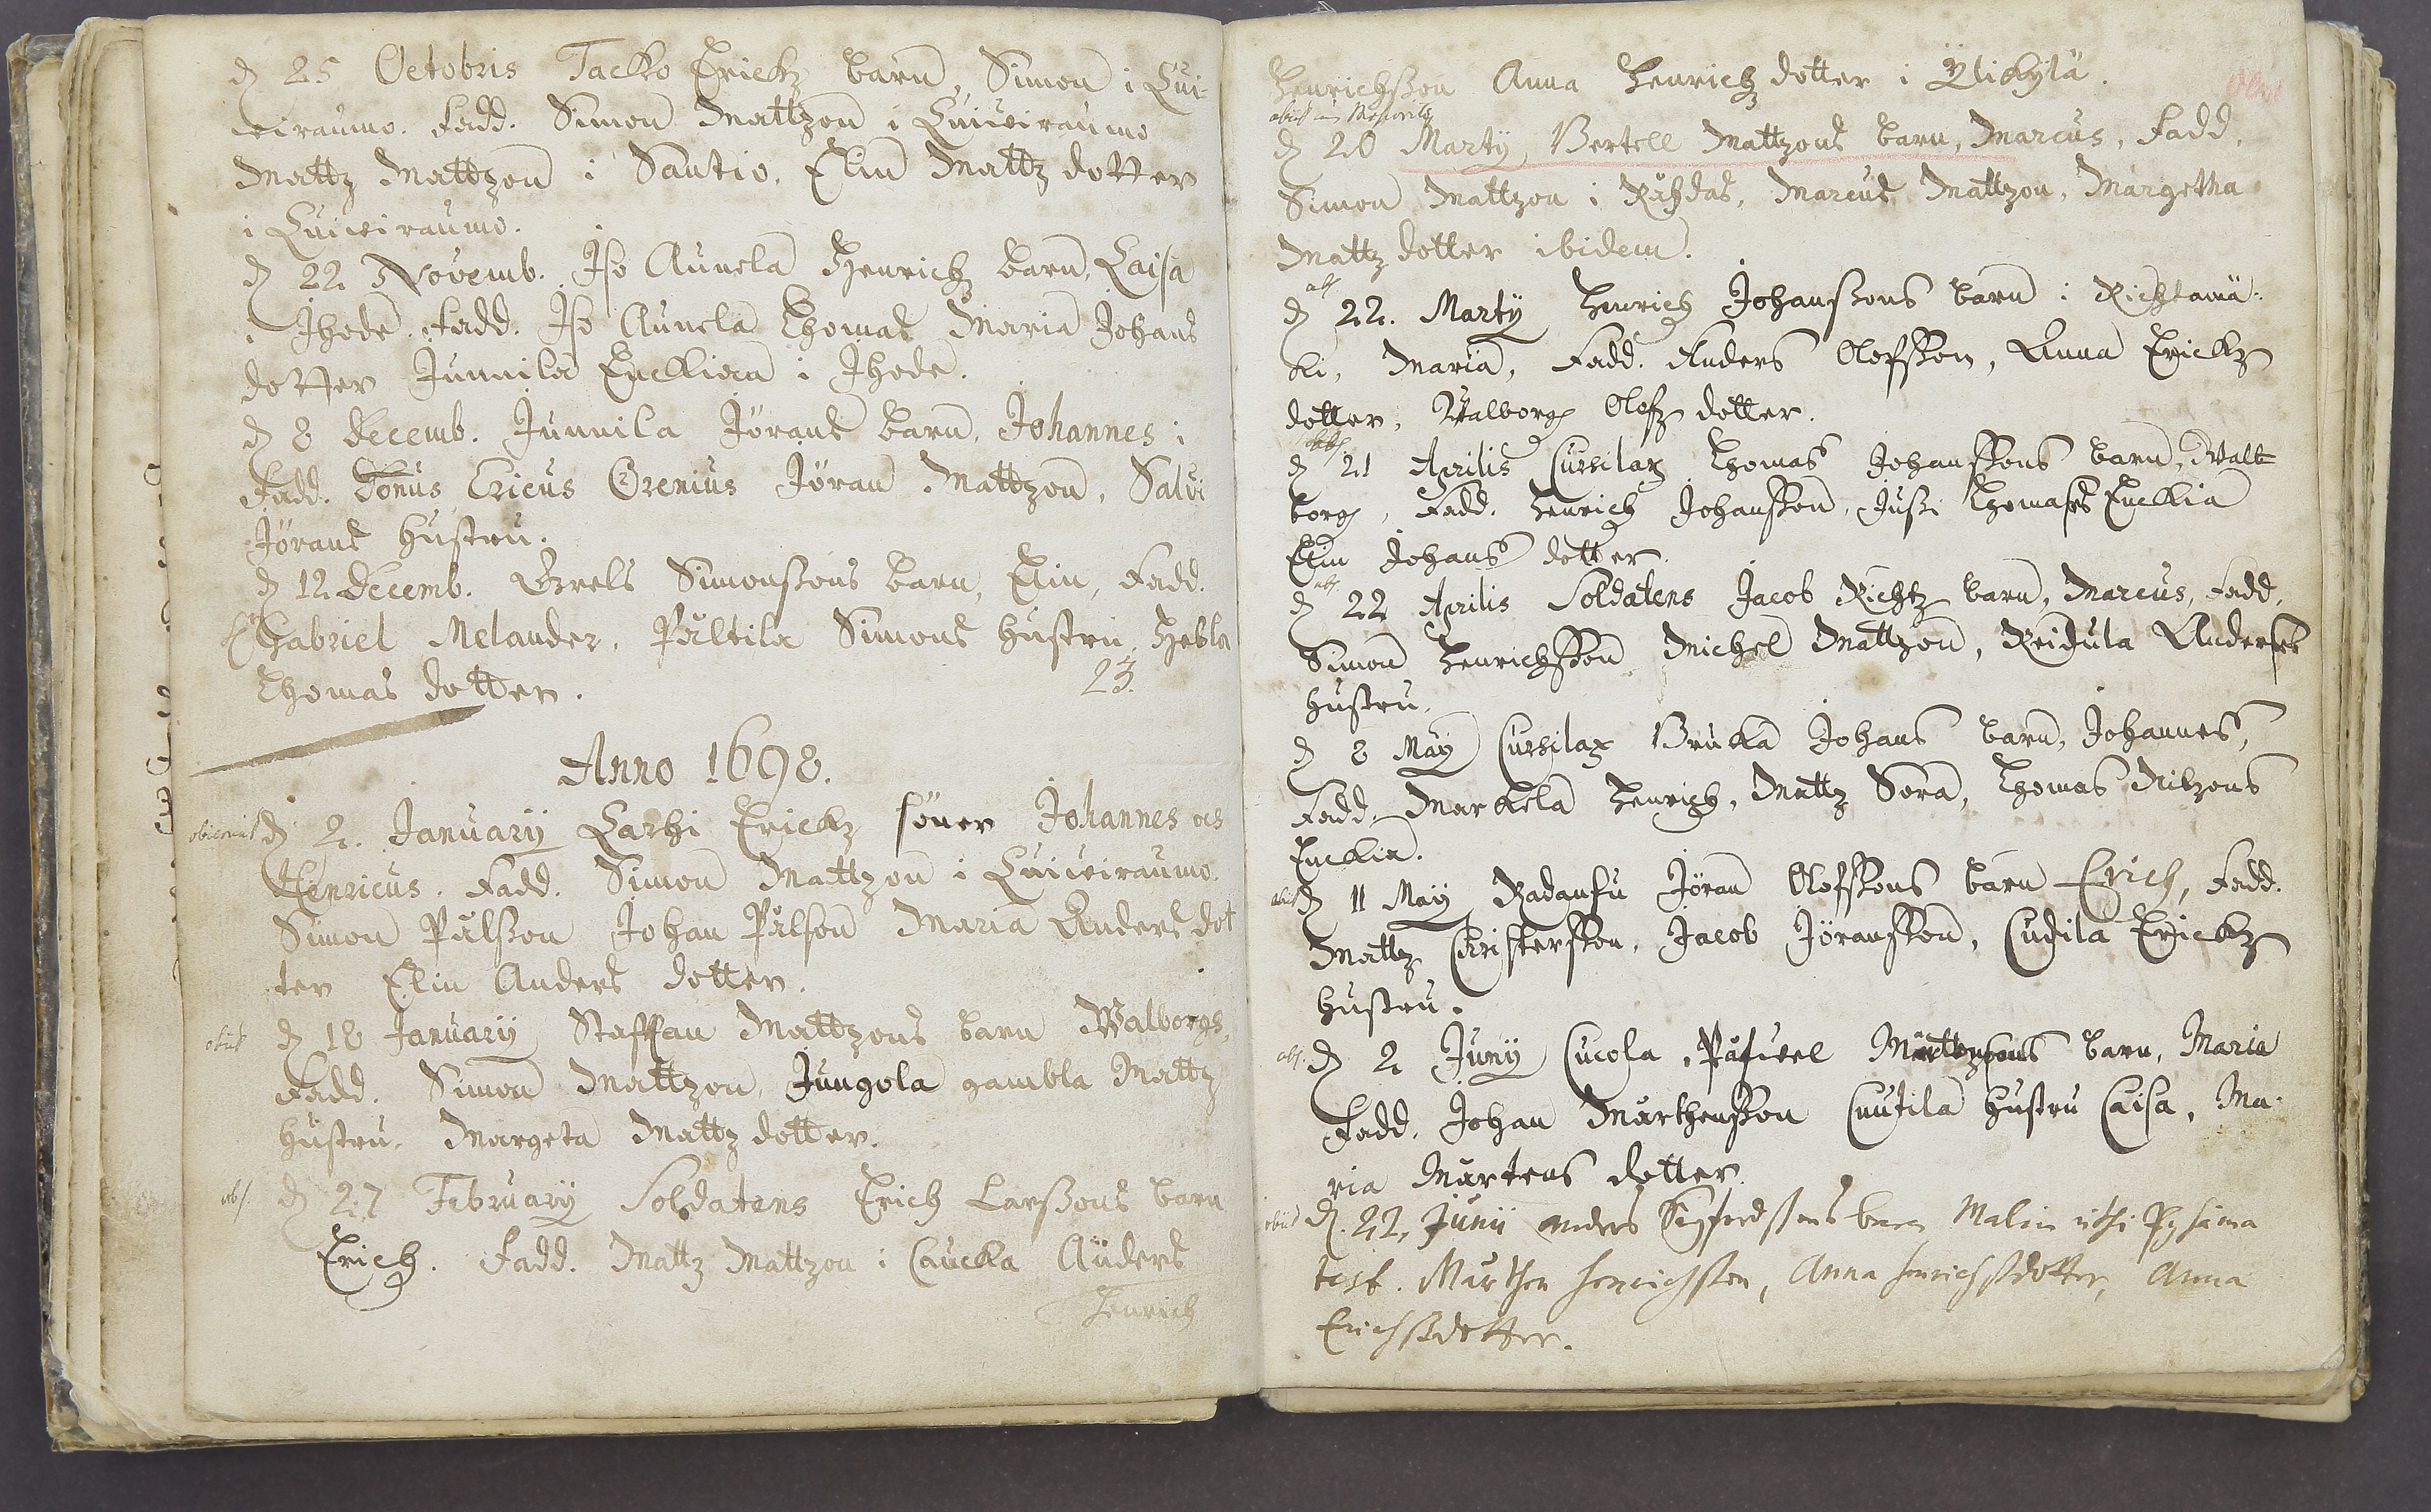 d 25 Octobris Tacko Erickz barn, Simon i Lui-
veiraumo. Fadd. Simon Mattzon i Luiveiraumo
Mattz Mattzon i Santio. Elin Mattz dotter
i Luiveiraumo.
d 22 Novemb. Iso Aunela Henrichz barn, Caisa
i Ihode. Fadd. Iso Aunela Thomas Maria Johans
dotter Junnila Enckian i Ihode.
d 8 Decemb. Junnila Jörans barn, Johannes i
Fadd. Dnus Ericus Grenius Jöran Mattzon, Salvi
Jörans hustru.
d 12 Decemb. Grels Simonssons barn, Elin, Fadd.
Gabriel Melander, Påltila Simons hustru, Hebla
Thomas dotter.
23.
Anno 1698.
obierunt d 2. January Larhi Erickz söner Johannes as
Henricus. Fadd. Simon Mattzon i Luiveiraumo.
Simon Pålsson Johan Pålson Maria Anders dot
ter Elin Anders dotter.
obiit d 18 January Staffan Mattzons barn Walborgs,
Fadd. Simon Mattzon, Jungola gambla Mattz
hustru, Margeta Mattz dotter.
ob. d 27 February Soldatens Erich Larssons barn
Erich. Fadd. Mattz Mattzon i Caucka Anders
Henrich
Henrichsson Anna Henrichz dotter i Ylikylä.
obiit
d 20 Marty, Bertell Mattzons barn, Marcus, Fadd.
Simon Mattzon i Råhdas, Marcus Mattzon, Margetha
Mattz dotter ibidem.
ob.
d 22. Marty Henrich Johanssons barn i Richtamä-
ki, Maria, Fadd. Anders Olofsson, Anna Erickz
dotter, Walborg Olofz dotter.
d 21 Aprilis Cursilax Thomas Johanssons barn, Wall
borg, Fadd. Henrich Johansson, Jussi Thomass Enckia
Elin Johans dotter.
ob.
d 22 Aprilis Soldatens Jacob Richtz barn, Marcus, Fadd.
Simon Henrichsson Michel Mattzon, Reidula Anderss
hustru.
d 8 May Cursilax Brukka Johans barn, Johannes,
Fadd. Markela Henrich, Mattz Sora, Thomas Nilzons
Enckia.
obiit d 11 May Radansu Jöran Olofssons barn Erich, Fadd.
Mattz Christersson, Jacob Jöransson, Cudila Erickz
hustru.
ob. d 2 Juny Cucola, Påfwel Mårtzsons barn, Maria
Fadd. Johan Mårthensson Cnutila hustru Caisa, Ma-
ria Mårtens dotter.
obiit d. 22, Junii Anders Sigfredssons barn Malin uthi Pyhäma
test. Mårthen Henrichsson, Anna Henrichssdotter, Anna
Erichssdotter.